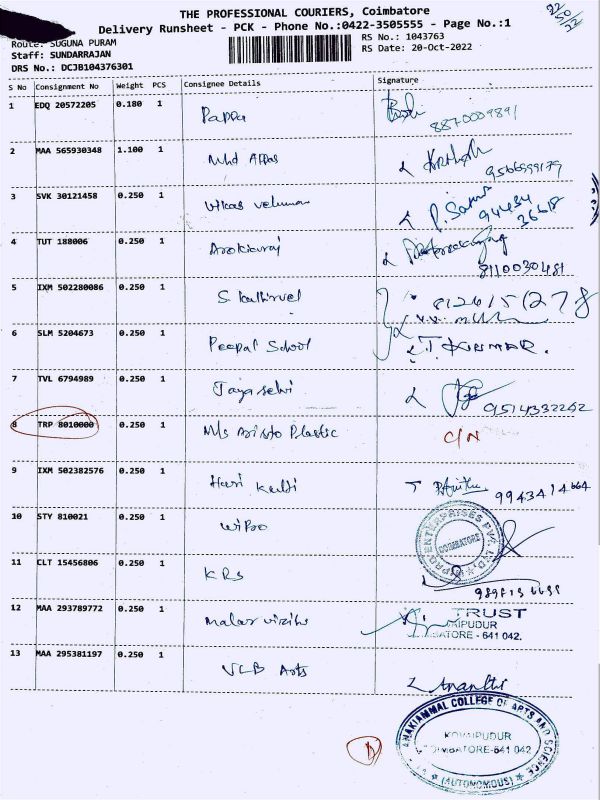 THE PROFESSIONAL COURIERS, Coimbatore
Delivery Runsheet - PCK - Phone No.:0422-3505555 - Page No.:1
Route: SUGUNA PURAM
RS No.: 1043763
Staff: SUNDARRAJAN
RS Date: 20-Oct-2022
DRS No.: DCJB104376301
S No Consignment No Weight PCS Consignee Details Signature
1 EDQ 20572205 0.180 1 Pappa 8870009891
2 MAA 565930348 1.100 1 Mhd Abbas 9566699179
3 SVK 30121458 0.250 1 Vikas veluman P. Sami 94434
36618
4 TUT 188006 0.250 1 Arokiaraj 8110030481
5 IXM 502280086 0.250 1 S Kathirvel 8126151278
6 SLM 5204673 0.250 1 Peepal School T. KUMAR.
7 TVL 6794989 0.250 1 Jayaselvi 9514332242
8 TRP 8010000 0.250 1 M/s Aristo Plastic C/N
9 IXM 502382576 0.250 1 Hari 9943414664
10 STY 810021 0.250 1 Wipro
ENTERPRISES PVT. LTD
COIMBATORE
11 CLT 15456806 0.250 1 KRS
12 MAA 293789772 0.250 1 Malar
TRUST
641 042.
13 MAA 295381197 0.250 1 VLB Arts Ananthi
COLLEGE OF ARTS AND SCIENCE
KOVAIPUDUR
COIMBATORE-641 042
(AUTONOMOUS)